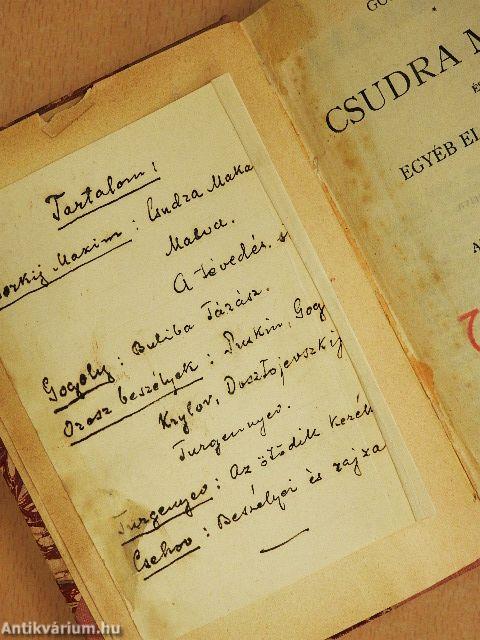 Tartalom:
Gorkij Maxim: Csudra Maka
Malva.
A tévedés. s
Gogoly: Buliba Tárász.
Orosz beszélyek: Puskin, Gog
Krylov, Dosztojevszkij
Turgenyev.
Turgenyev: Az ötödik kerék
Csehov: Beszélyei és rajza
GO
CSUDRA M
ÉS
EGYÉB EL
A
Antikvárium.hu